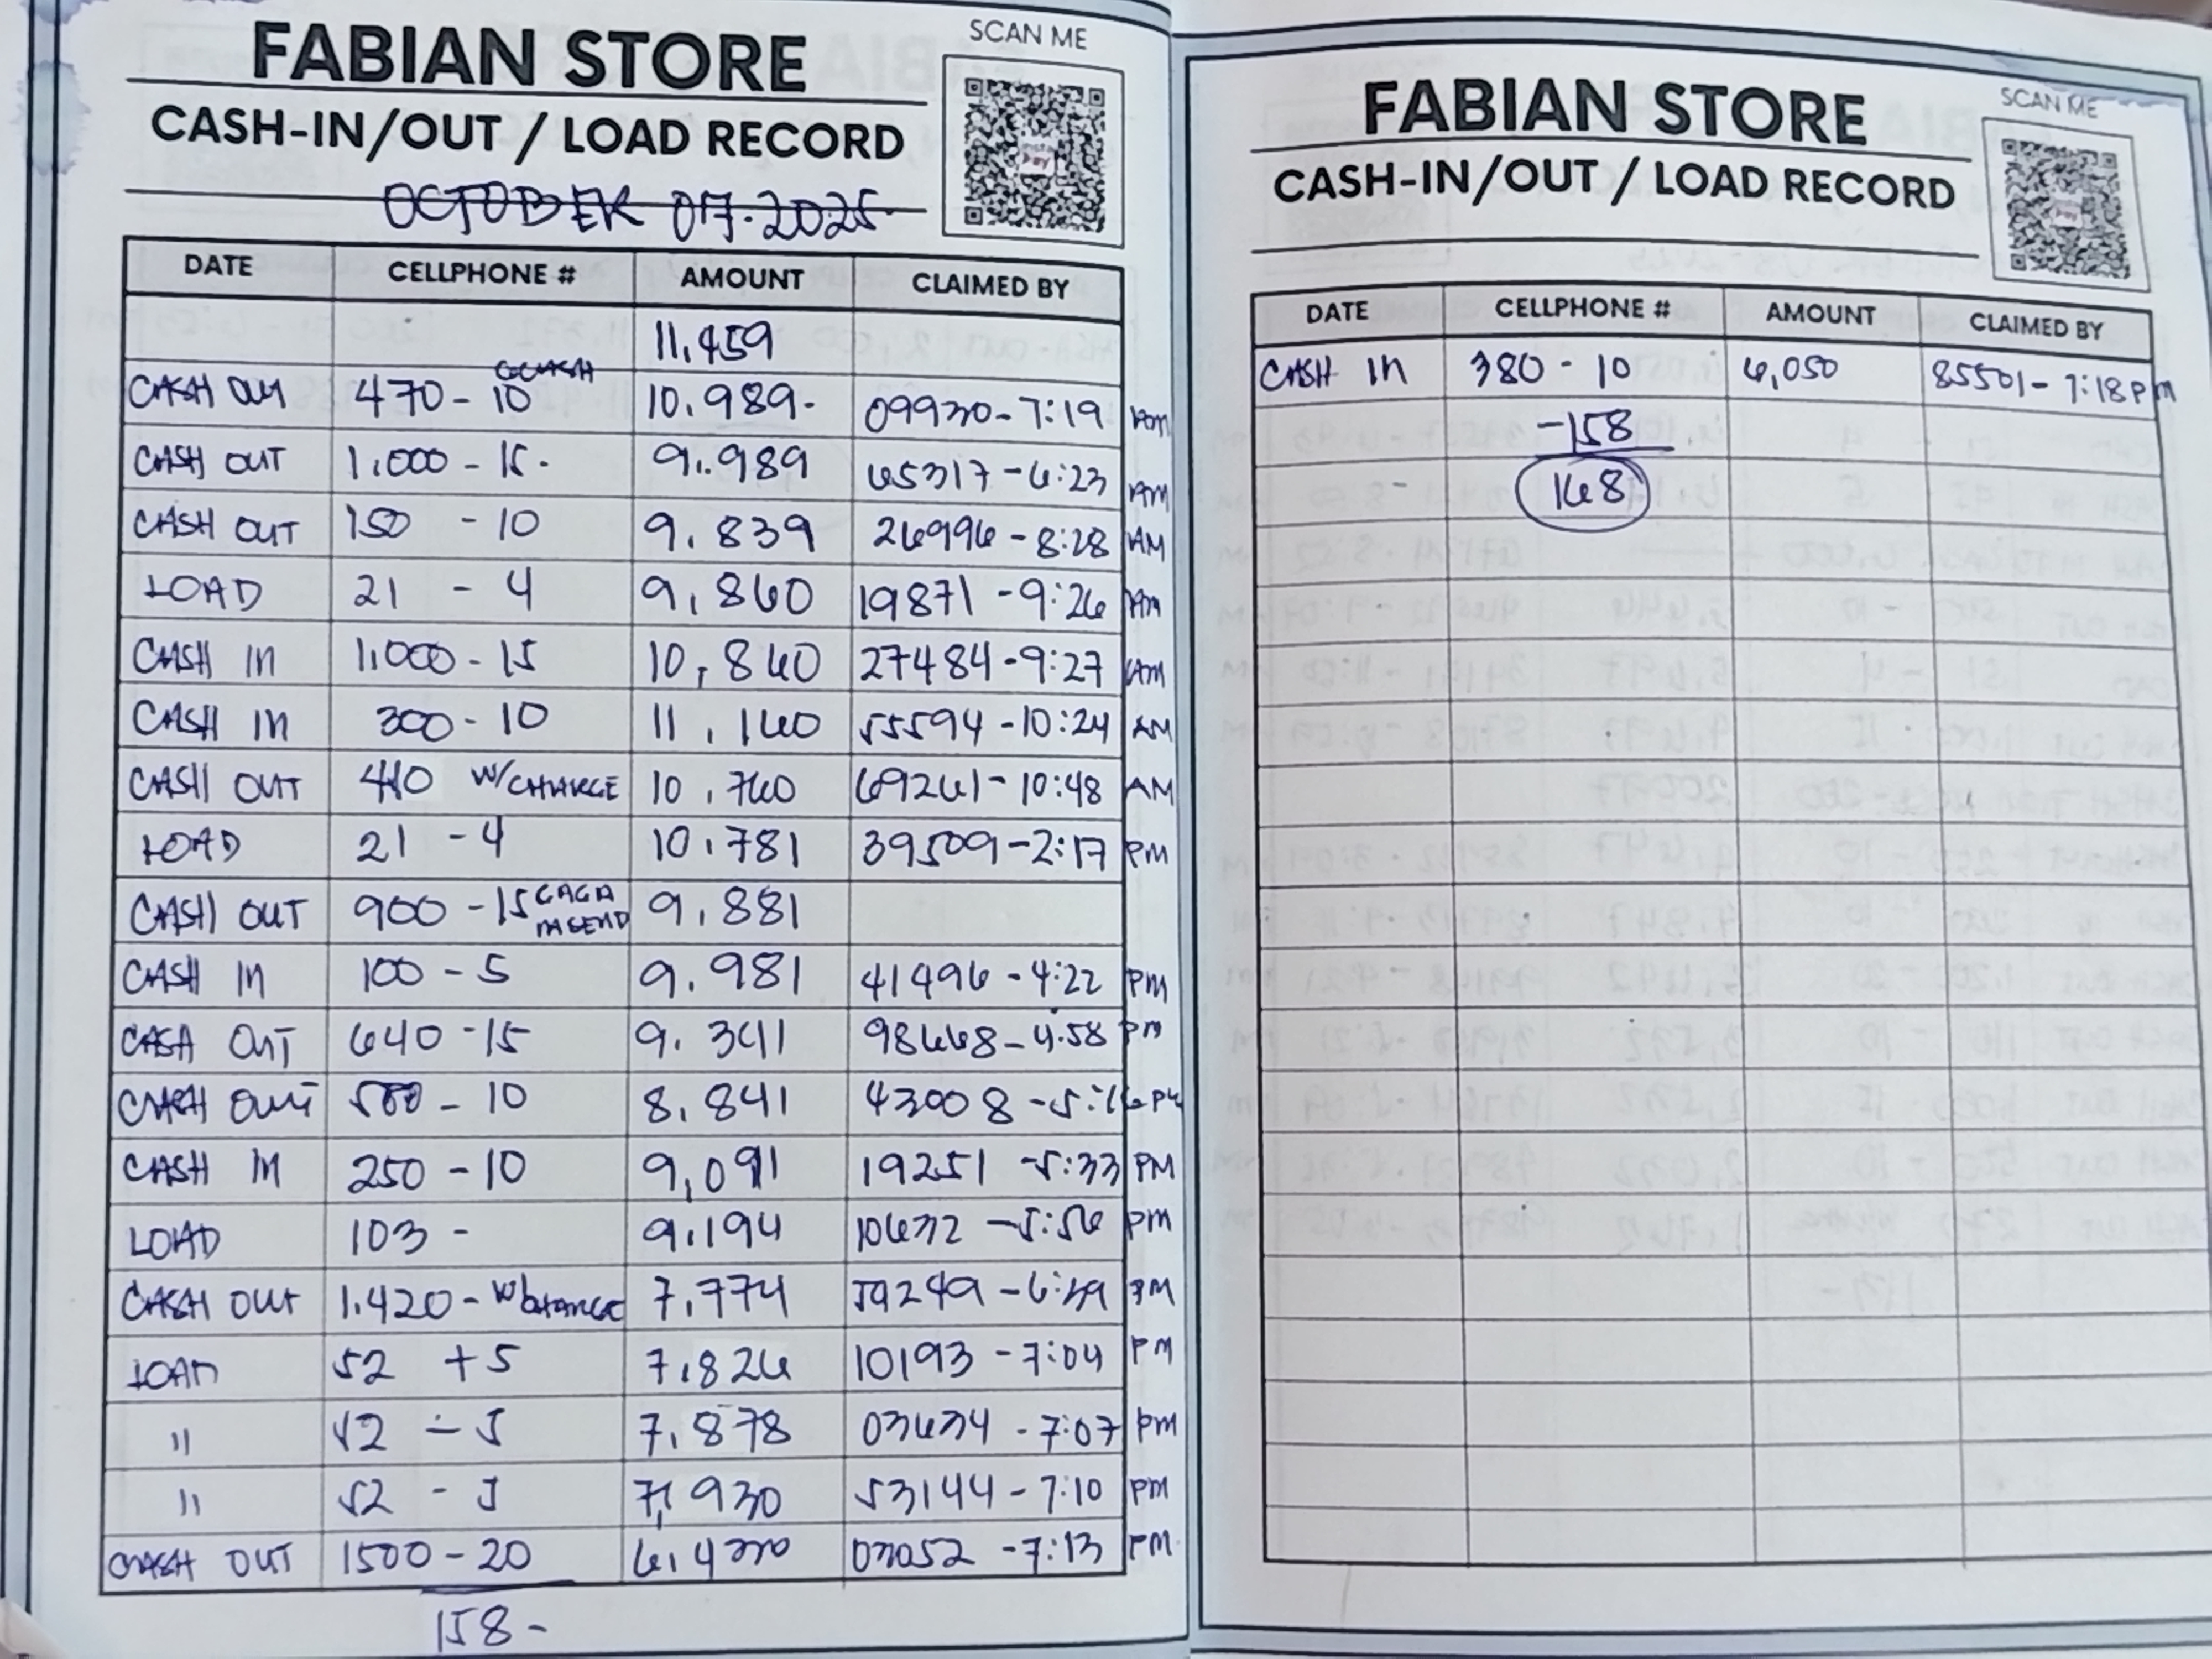 FABIAN STORE
CASH-IN/OUT / LOAD RECORD
SCAN ME
OCTOBER 07.2025
DATE CELLPHONE # AMOUNT CLAIMED BY
11,459
GCASH
CASH OUT 470 - 10 10.989- 09930-7:19 AM
CASH OUT 1,000 - 15 - 9.989 65317-6:23 AM
CASH OUT 150 - 10 9.839 26996-8:28 AM
LOAD 21 - 4 9,860 19871-9:26 AM
CASH IN 1,000 - 15 10,860 27484-9:27 AM
CASH IN 300 - 10 11,160 55594-10:24 AM
CASH OUT 410 W/CHARGE 10.760 69261-10:48 AM
LOAD 21 - 4 10.781 39509-2:17 PM
CASH OUT 900 - 15 9.881
CASH IN 100 - 5 9.981 41496-4:22 PM
CASH OUT 640 - 15 9.341 98668-4:58 PM
CASH OUT 500 - 10 8.841 43008-5:16 PM
CASH IN 250 - 10 9,091 19251-5:33 PM
LOAD 103 - 9.194 10632-5:56 PM
CASH OUT 1.420 - W/CHARGE 7.774 59249-6:59 PM
LOAD 52 + 5 7.826 10193-7:04 PM
" 52 - 5 7.878 03634-7:07 PM
" 52 - 5 7,930 53144-7:10 PM
CASH OUT 1500 - 20 6,430 03052-7:13 PM
158 -
FABIAN STORE
CASH-IN/OUT / LOAD RECORD
SCAN ME
DATE CELLPHONE # AMOUNT CLAIMED BY
CASH IN 380 - 10 6,050 85501-7:18 PM
-158
168